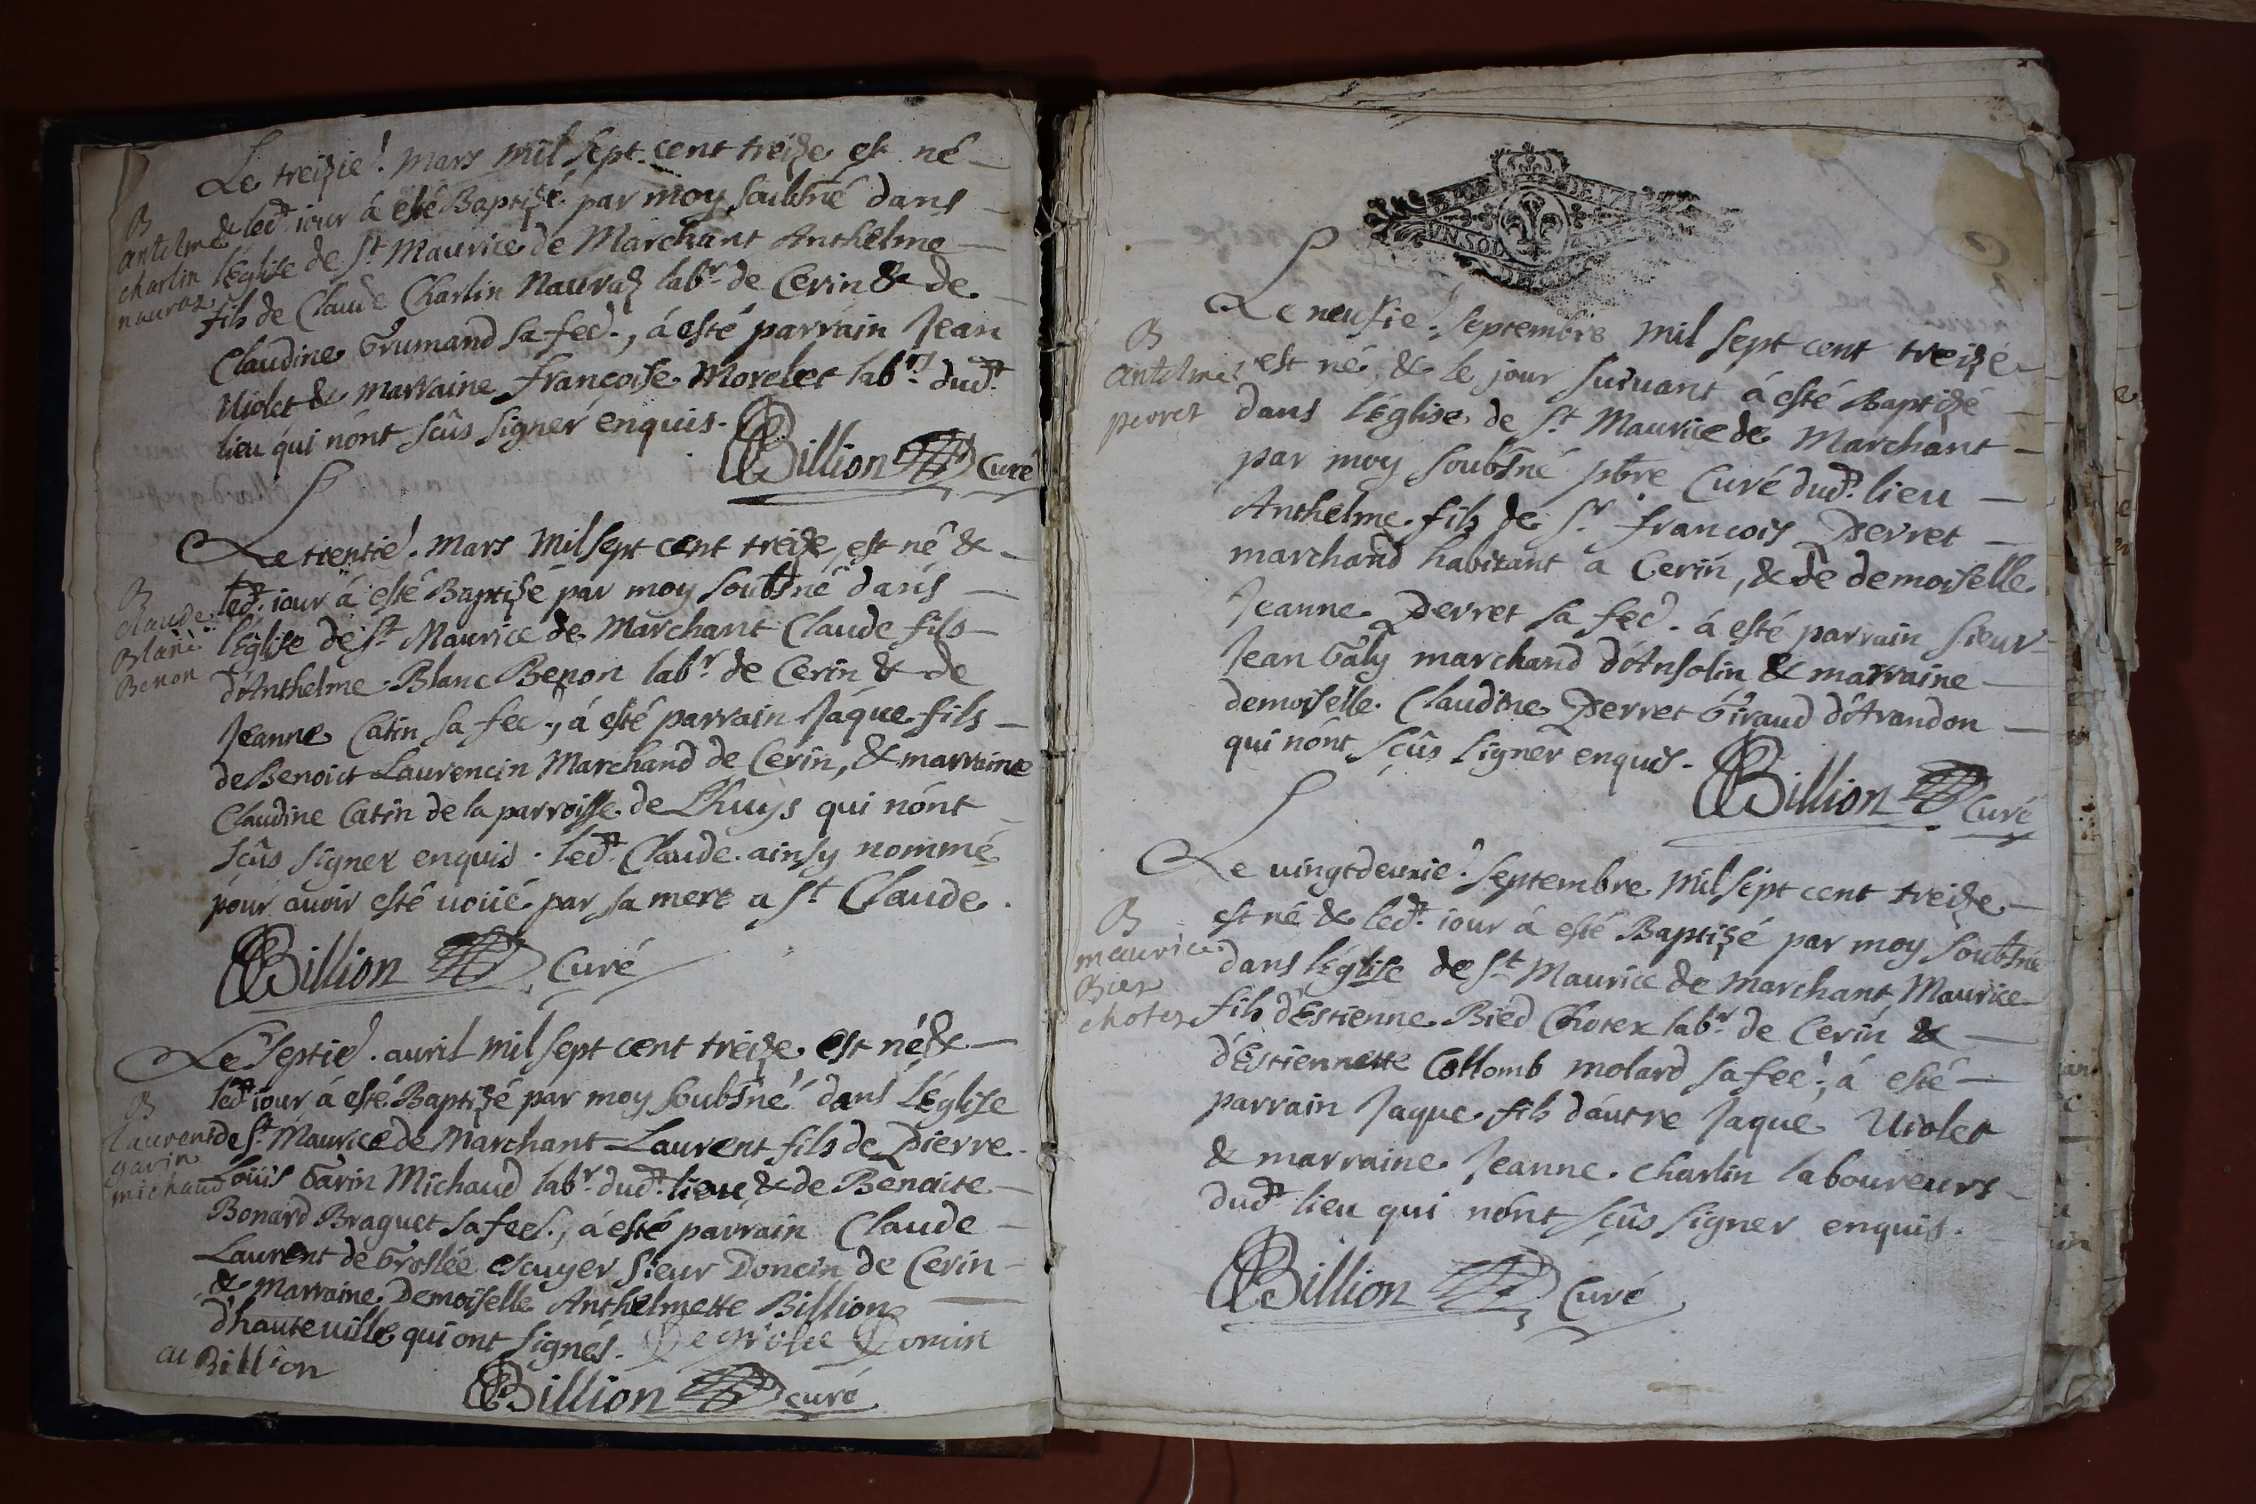 Le treizie. mars mil sept cent treize est né
B
& led.t iour á esté Baptizé par moy soubsné dans
antelme
l'église de St Maurice de Marchant Anthelme
charlin
nauraz
fils de Claude Charlin Nauraz labr. de Cerin & de
Claudine Grumand sa feē., á esté parrain Jean
Violet & marraine françoise Morelet labrs. dud.t
lieu qui nónt sçûs signer enquis.
Billion Curé
Le trentie. mars mil sept cent treize est né &
B
led.t iour á esté Baptizé par moy soubsné dans
claude
l'église de St Maurice de Marchant Claude fils
Blanc
Benon
d'Anthelme Blanc Benon labr. de Cerin & de
Jeanne Catin sa feē., á esté parrain Jáque fils
de Benoict Laurencin Marchand de Cerin, & marraine
Claudine Catin de la parroisse de Lhuys qui nónt
sçûs signer enquis. led.t Claude ainsy nommé
pour auoir esté uoüé par sa mere a St Claude.
Billion Curé
Le septie. auril mil sept cent treize est né &
led.t iour á esté Baptizé par moy soubsné dans l'église
B
laurent
de St Maurice de Marchant Laurent fils de Pierre
garin
michaud
Loüis Garin Michaud labr. dud.t lieu & de Benoite
Bonard Braguet sa feē., á esté parrain Claude
Laurent de Grollée escuyer sieur Doncin de Cerin
& Marraine Demoiselle Anthelmette Billion
d'hauteuille qui ont signés. De Grolee Doncin
Billion
Billion curé
Le neufie. septembre mil sept cent treizé
B
est né, & le jour suiuant á esté Baptizé
antelme
perret
dans l'Église de St Maurice de Marchant
par moy soubsné pbre Curé dud.t lieu
Anthelme fils de Sr. francois Perret
marchand habitant a Cerin, & de demoiselle
Jeanne Perret sa feē. á esté parrain sieur
Jean Galy marchand d'Ansolin & marraine
demoiselle Claudine Perret Giraud d'Arandon
qui nónt sçûs signer enquis.
Billion Curé
Le uingtdeuxie. septembre mil sept cent treize
B
est né & led.t iour á esté Baptizé par moy soubsné
maurice
dans l'Église de St Maurice de Marchant Maurice
Biez
chotex
fils d'Estienne Bied Chotex labr. de Cerin &
d'Estiennette Collomb molard sa feē., á esté
parrain Jaque fils d'autre Jaque Uiolet
& marraine Jeanne charlin laboureurs
dud.t lieu qui nónt sçûs signer enquis.
Billion Curé